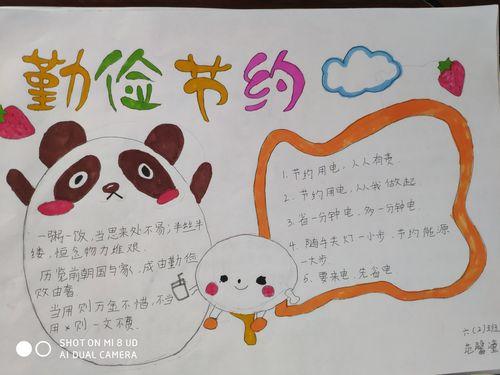 勤俭节约
一粥一饭,当思来处不易;半丝半
缕,恒念物力维艰.
历览前朝国与家,成由勤俭
败由奢
当用则万金不惜,不当
用×则一文不费.
1.节约用电,人人有责
2.节约用电,从我做起
3.省一分钟电,多一分钟电.
4.随手关灯一小步,节约能源
一大步
5.要来电,先省电
六(2)班
SHOT ON MI 8 UD
AI DUAL CAMERA